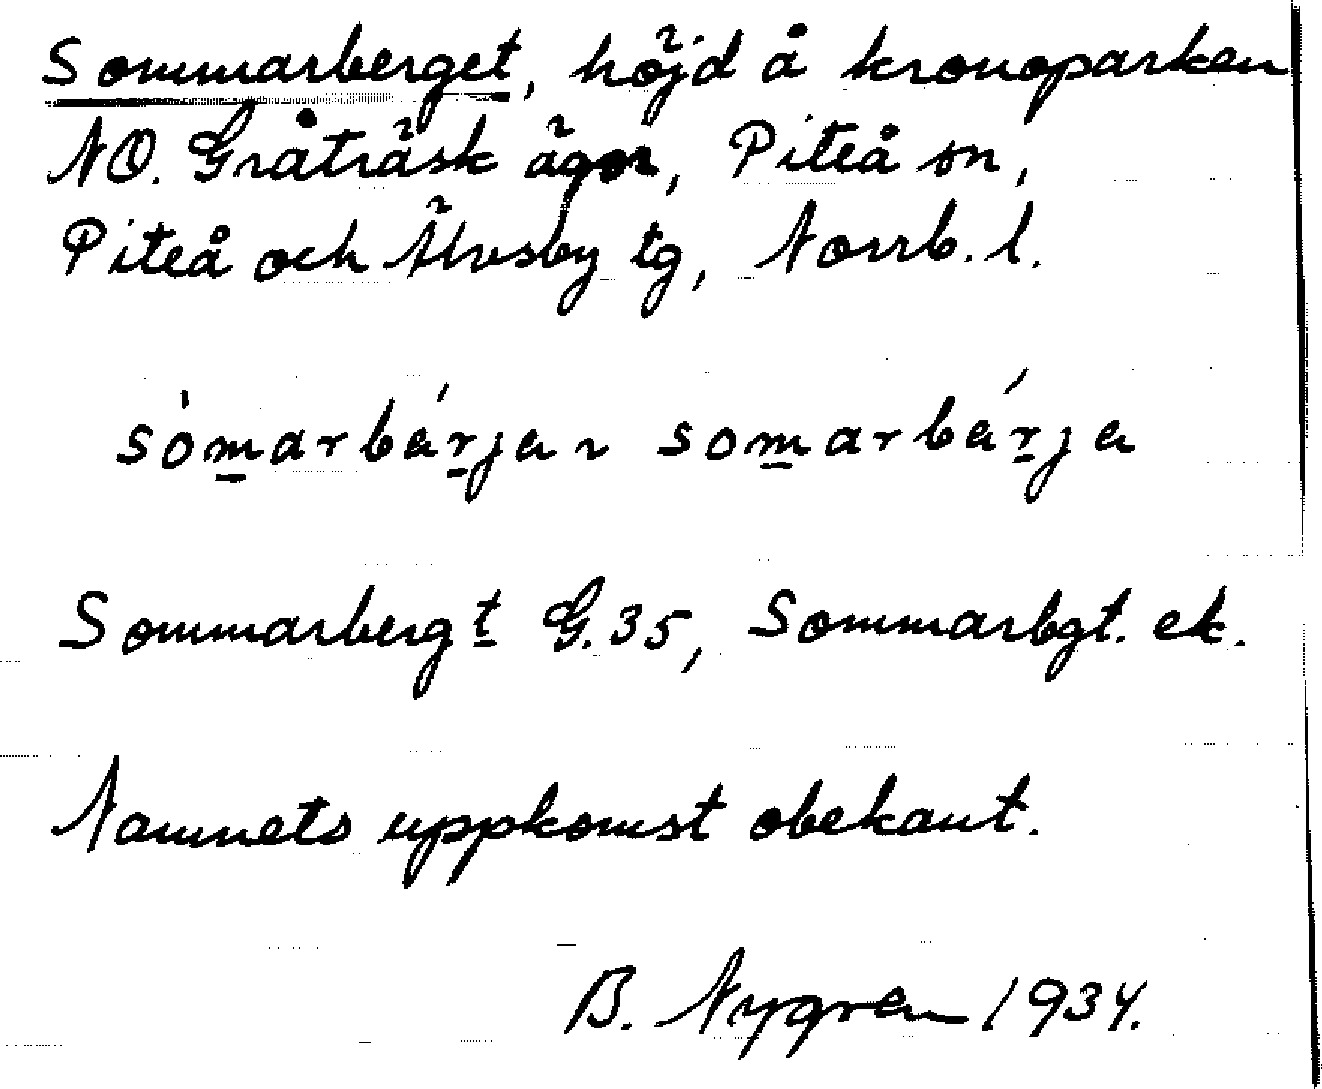 Sommarberget, höjd å kronoparken
NO. Gråträsk ägor, Piteå sn,
Piteå och Älvsby tg, Norrb. l.
sòmarbárjar somarbárja
Sommarbergt G.35, Sommarbgt. ek.
Namnets uppkomst obekant.
B. Nygren 1934.